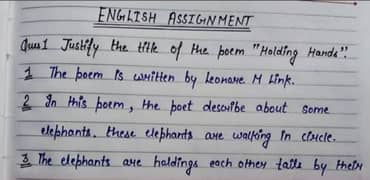 ENGLISH ASSIGNMENT
Ques1 Justify the title of the poem "Holding Hands".
1 The poem is written by Leonare M Link.
2 In this poem, the poet describe about some
elephants. these elephants are walking in circle.
3 The elephants are holdings each other tails by their